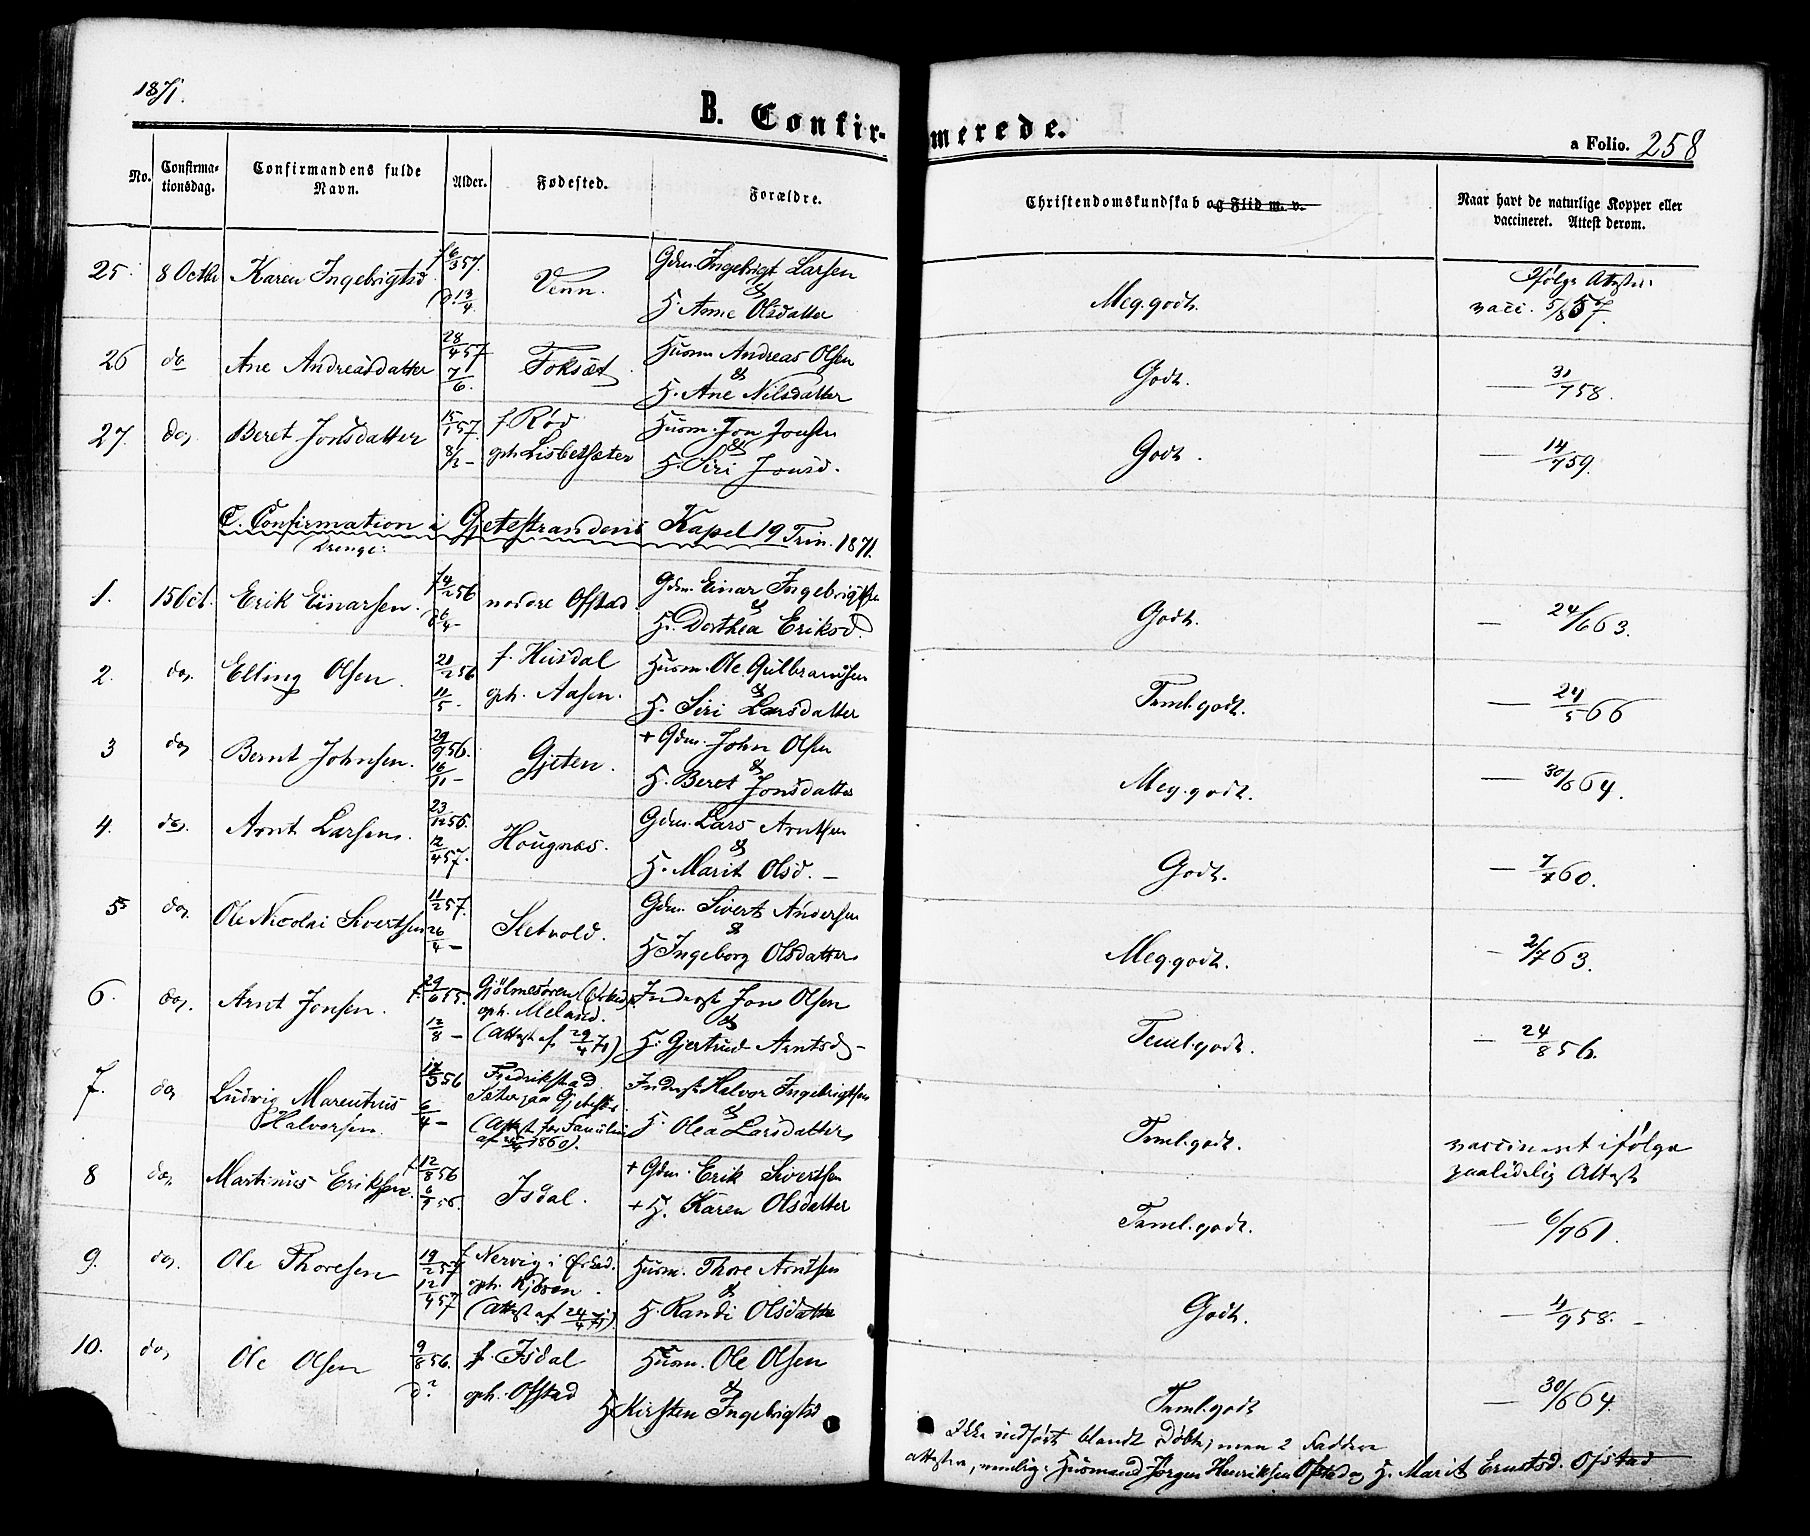 1871.
B. Confir-
merede.
a Folio. 258
No.
Confirma-
tionsdag.
Confirmandens fulde
Navn.
Alder.
Fødested.
Forældre.
Christendomskundskab og Flid m. v.
Naar havt de naturlige Kopper eller
vaccineret. Attest derom.
25. 8 Octbr Karen Ingebrigtsd f 6/3 57. d. 13/4. Venn. Gdm. Ingebrigt Larsen
& H. Anne Olsdatter Meg. godt. Ifølge Attester
vacc. 5/8 57.
26 do Ane Andreasdatter 28/4 57 7/6. Foksæt. Husm Andreas Olsen
& H. Ane Nilsdatter Godt. — 31/7 58.
27. do, Beret Jonsdatter 15/1 57. 8/3 — f. Rød
oph. Lisbetsæter Husm. Jon Jonsen
& H. Siri Jonsd. Godt. — 14/7 59.
C. Confirmation i Gjetestrandens Kapel 19 Trin. 1871.
Drenge:
1. 15 Oct. Erik Einarsen. f 4/2 56 nedre Ofstad Gdm. Einar Ingebrigtsen
& H. Dorthea Eriksd. Godt. — 24/6 63.
2. do, Elling Olsen. 20/2 56 11/5. f. Husdal
oph. Aasen. Husm. Ole Gulbrandsen
& H. Siri Larsdatter Teml. godt. — 24/5 66
3 do, Bernt Johnsen. 29/9 56. 16/11 — Gjeten. + Gdm. John Olsen
& H. Beret Jonsdatter Meg. godt. — 30/6 64.
4. do. Arnt Larsen. 23/12 56. 12/4 57. Hougnæs. Gdm. Lars Arntsen
& H. Marit Olsd. — Godt. — 7/7 60.
5 do, Ole Nicolai Sivertsen 11/2 57. 26/4 — Sletvold. Gdm. Sivert Andersen
& H Ingeborg Olsdatter Meg. godt. — 2/7 63.
6. do, Arnt Jonsen. f. 29/6 55. 12/8 — Gjølmesøren (Ørked.)
oph. Meland.
(Attest af 29/4 71) Inderst Jon Olsen
& H. Gjertrud Arntsd — Teml. godt. — 24/8 56.
7. do, Ludvig Marentius
Halvorsen. 17/3 56 6/4 — Fredrikstad
(Attest for Familien
1860). Inderst Halvor Ingebrigtsen
& H. Olea Larsdatter Teml. godt. vaccineret ifølge
paalidelig Attest
8 do, Martinus Eriksen. f 12/8 56 Isdal. + Gdm. Erik Sivertsen
+ H. Karen Olsdatter Teml. godt. — 6/9 61.
9. do, Ole Thoresen 19/2 57 12/4 57 f Nervig i Ørked.
oph. Kjøren.
(Attest af 24/4 71) Husm. Thore Arntsen
& H. Randi Olsdatter Godt. — 11/9 58. —
10. do, Ole Olsen 9/8 56. d? f. Isdal
oph. Ofstad Husm. Ole Olsen
& H. Kirsten Ingebrigtsd Teml. godt — 30/6 64.
Ikke indført blandt Døbte, men 2 Faddere
attestere, nemlig: Husmand Jørgen Henriksen Ofstad og H. Marit Erntsd. Ofstad